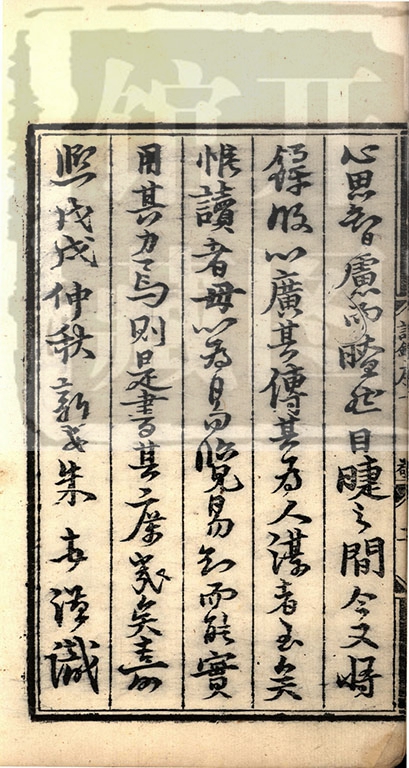 心思智慮而然目睫之間今又將
鋟版以廣其傳其為人謀者至矣
惟讀者毋以為易而易知而能實
用其力焉則是書其庶幾矣嘉
熙戊戌仲秋新安朱謹識